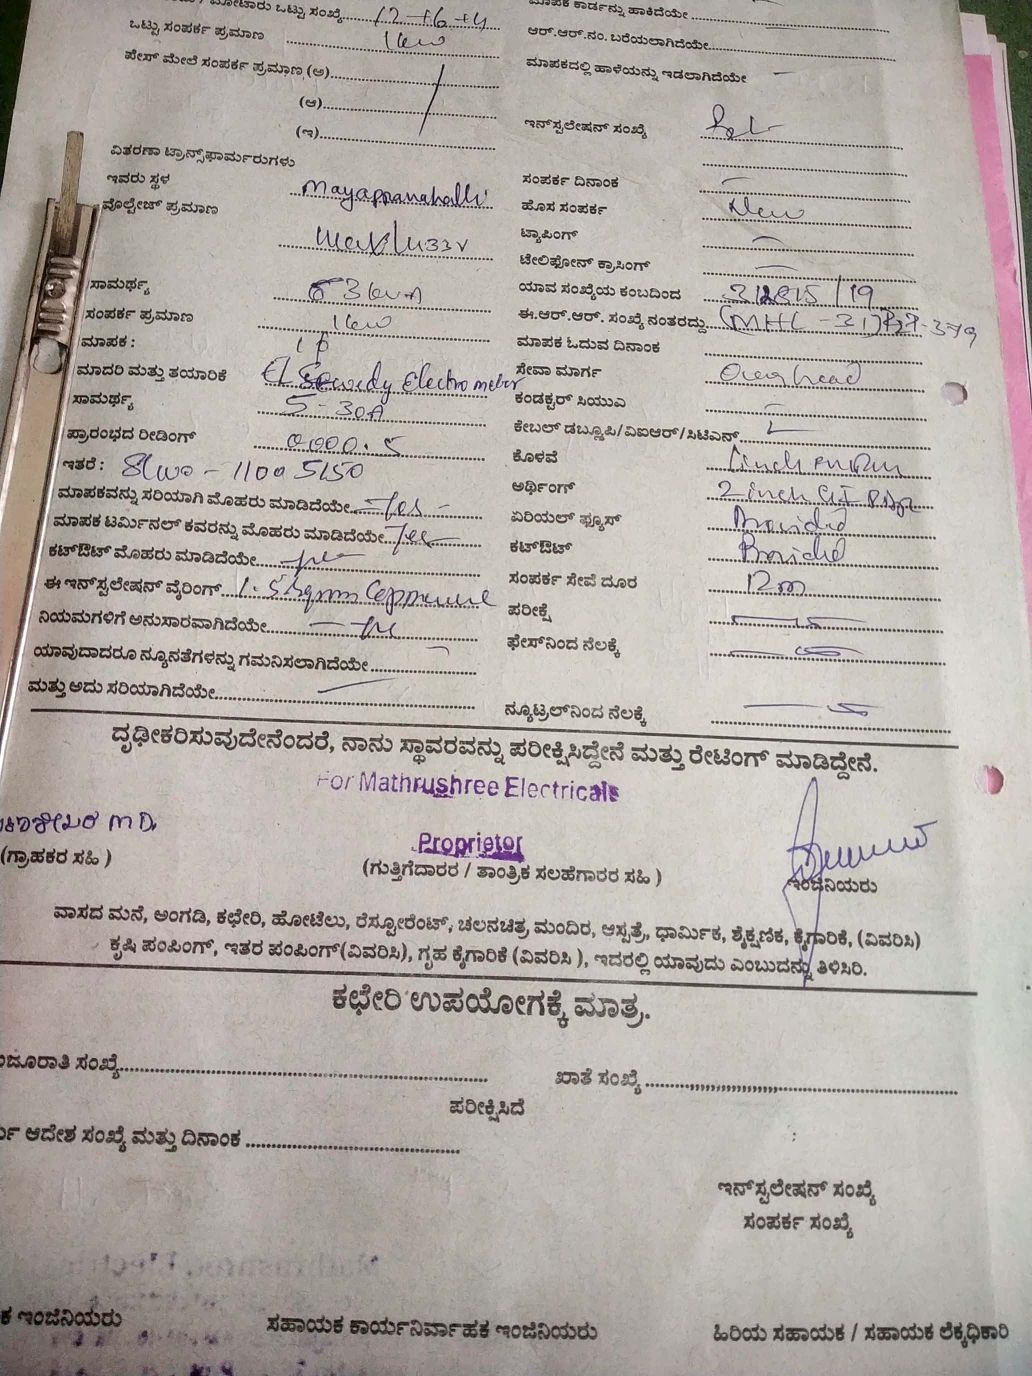 ಒಟ್ಟು ಸಂಖ್ಯೆ 12+6+4
ಮಾಪಕ ಕಾರ್ಡನ್ನು ಹಾಕಿದೆಯೇ
ಒಟ್ಟು ಸಂಪರ್ಕ ಪ್ರಮಾಣ 1kw
ಆರ್.ಆರ್.ನಂ. ಬರೆಯಲಾಗಿದೆಯೇ
ಪೇಸ್ ಮೇಲೆ ಸಂಪರ್ಕ ಪ್ರಮಾಣ (ಅ)
ಮಾಪಕದಲ್ಲಿ ಹಾಳೆಯನ್ನು ಇಡಲಾಗಿದೆಯೇ —
(ಆ)
(ಇ)
ಇನ್‌ಸ್ಟಲೇಷನ್ ಸಂಖ್ಯೆ
ವಿತರಣಾ ಟ್ರಾನ್ಸ್‌ಫಾರ್ಮರುಗಳು
ಇವರು ಸ್ಥಳ Mayappanahalli
ಸಂಪರ್ಕ ದಿನಾಂಕ —
ವೊಲ್ಟೇಜ್ ಪ್ರಮಾಣ
ಹೊಸ ಸಂಪರ್ಕ New
ಟ್ಯಾಪಿಂಗ್ —
ಟೇಲಿಫೋನ್ ಕ್ರಾಸಿಂಗ್ —
ಸಾಮರ್ಥ್ಯ 63kvA
ಯಾವ ಸಂಖ್ಯೆಯ ಕಂಬದಿಂದ
ಸಂಪರ್ಕ ಪ್ರಮಾಣ 1kw
ಈ.ಆರ್.ಆರ್. ಸಂಖ್ಯೆ ನಂತರದ್ದು (MHL-31)
ಮಾಪಕ :
ಮಾಪಕ ಓದುವ ದಿನಾಂಕ
ಮಾದರಿ ಮತ್ತು ತಯಾರಿಕೆ EL Sewedy Electrometer
ಸೇವಾ ಮಾರ್ಗ Over head
ಸಾಮರ್ಥ್ಯ 5-30A
ಕಂಡಕ್ಟರ್ ಸಿಯುಎ —
ಪ್ರಾರಂಭದ ರೀಡಿಂಗ್ 0000.5
ಕೇಬಲ್ ಡಬ್ಲೂಪಿ/ವಿಐಆರ್/ಸಿಟಿಎನ್
ಇತರೆ : Slno - 11005150
ಕೊಳವೆ
ಮಾಪಕವನ್ನು ಸರಿಯಾಗಿ ಮೊಹರು ಮಾಡಿದೆಯೇ —yes—
ಅರ್ಥಿಂಗ್ 2 inch GI Pipe
ಮಾಪಕ ಟರ್ಮಿನಲ್ ಕವರನ್ನು ಮೊಹರು ಮಾಡಿದೆಯೇ yes
ಏರಿಯಲ್ ಫ್ಯೂಸ್ Provided
ಕಟ್‌ಔಟ್ ಮೊಹರು ಮಾಡಿದೆಯೇ
ಕಟ್‌ಔಟ್ Provided
ಈ ಇನ್‌ಸ್ಟಲೇಷನ್ ವೈರಿಂಗ್ 1.5 Sqmm Copper wire
ಸಂಪರ್ಕ ಸೇವೆ ದೂರ 12m
ನಿಯಮಗಳಿಗೆ ಅನುಸಾರವಾಗಿದೆಯೇ
ಪರೀಕ್ಷೆ
ಯಾವುದಾದರೂ ನ್ಯೂನತೆಗಳನ್ನು ಗಮನಿಸಲಾಗಿದೆಯೇ —
ಫೇಸ್‌ನಿಂದ ನೆಲಕ್ಕೆ
ಮತ್ತು ಅದು ಸರಿಯಾಗಿದೆಯೇ —
ನ್ಯೂಟ್ರಲ್‌ನಿಂದ ನೆಲಕ್ಕೆ
ದೃಢೀಕರಿಸುವುದೇನೆಂದರೆ, ನಾನು ಸ್ಥಾವರವನ್ನು ಪರೀಕ್ಷಿಸಿದ್ದೇನೆ ಮತ್ತು ರೇಟಿಂಗ್ ಮಾಡಿದ್ದೇನೆ.
For Mathrushree Electricals
Proprietor
(ಗ್ರಾಹಕರ ಸಹಿ )
(ಗುತ್ತಿಗೆದಾರರ / ತಾಂತ್ರಿಕ ಸಲಹೆಗಾರರ ಸಹಿ )
ಇಂಜಿನಿಯರು
ವಾಸದ ಮನೆ, ಅಂಗಡಿ, ಕಛೇರಿ, ಹೋಟೆಲು, ರೆಸ್ಟೋರೆಂಟ್, ಚಲನಚಿತ್ರ ಮಂದಿರ, ಆಸ್ಪತ್ರೆ, ಧಾರ್ಮಿಕ, ಶೈಕ್ಷಣಿಕ, ಕೈಗಾರಿಕೆ, (ವಿವರಿಸಿ)
ಕೃಷಿ ಪಂಪಿಂಗ್, ಇತರ ಪಂಪಿಂಗ್(ವಿವರಿಸಿ), ಗೃಹ ಕೈಗಾರಿಕೆ (ವಿವರಿಸಿ ), ಇದರಲ್ಲಿ ಯಾವುದು ಎಂಬುದನ್ನು ತಿಳಿಸಿರಿ.
ಕಛೇರಿ ಉಪಯೋಗಕ್ಕೆ ಮಾತ್ರ.
ಜೂರಾತಿ ಸಂಖ್ಯೆ
ಖಾತೆ ಸಂಖ್ಯೆ
ಪರೀಕ್ಷಿಸಿದೆ
ಆದೇಶ ಸಂಖ್ಯೆ ಮತ್ತು ದಿನಾಂಕ
ಇನ್‌ಸ್ಟಲೇಷನ್ ಸಂಖ್ಯೆ
ಸಂಪರ್ಕ ಸಂಖ್ಯೆ
ಕ ಇಂಜಿನಿಯರು
ಸಹಾಯಕ ಕಾರ್ಯನಿರ್ವಾಹಕ ಇಂಜಿನಿಯರು
ಹಿರಿಯ ಸಹಾಯಕ / ಸಹಾಯಕ ಲೆಕ್ಕಧಿಕಾರಿ